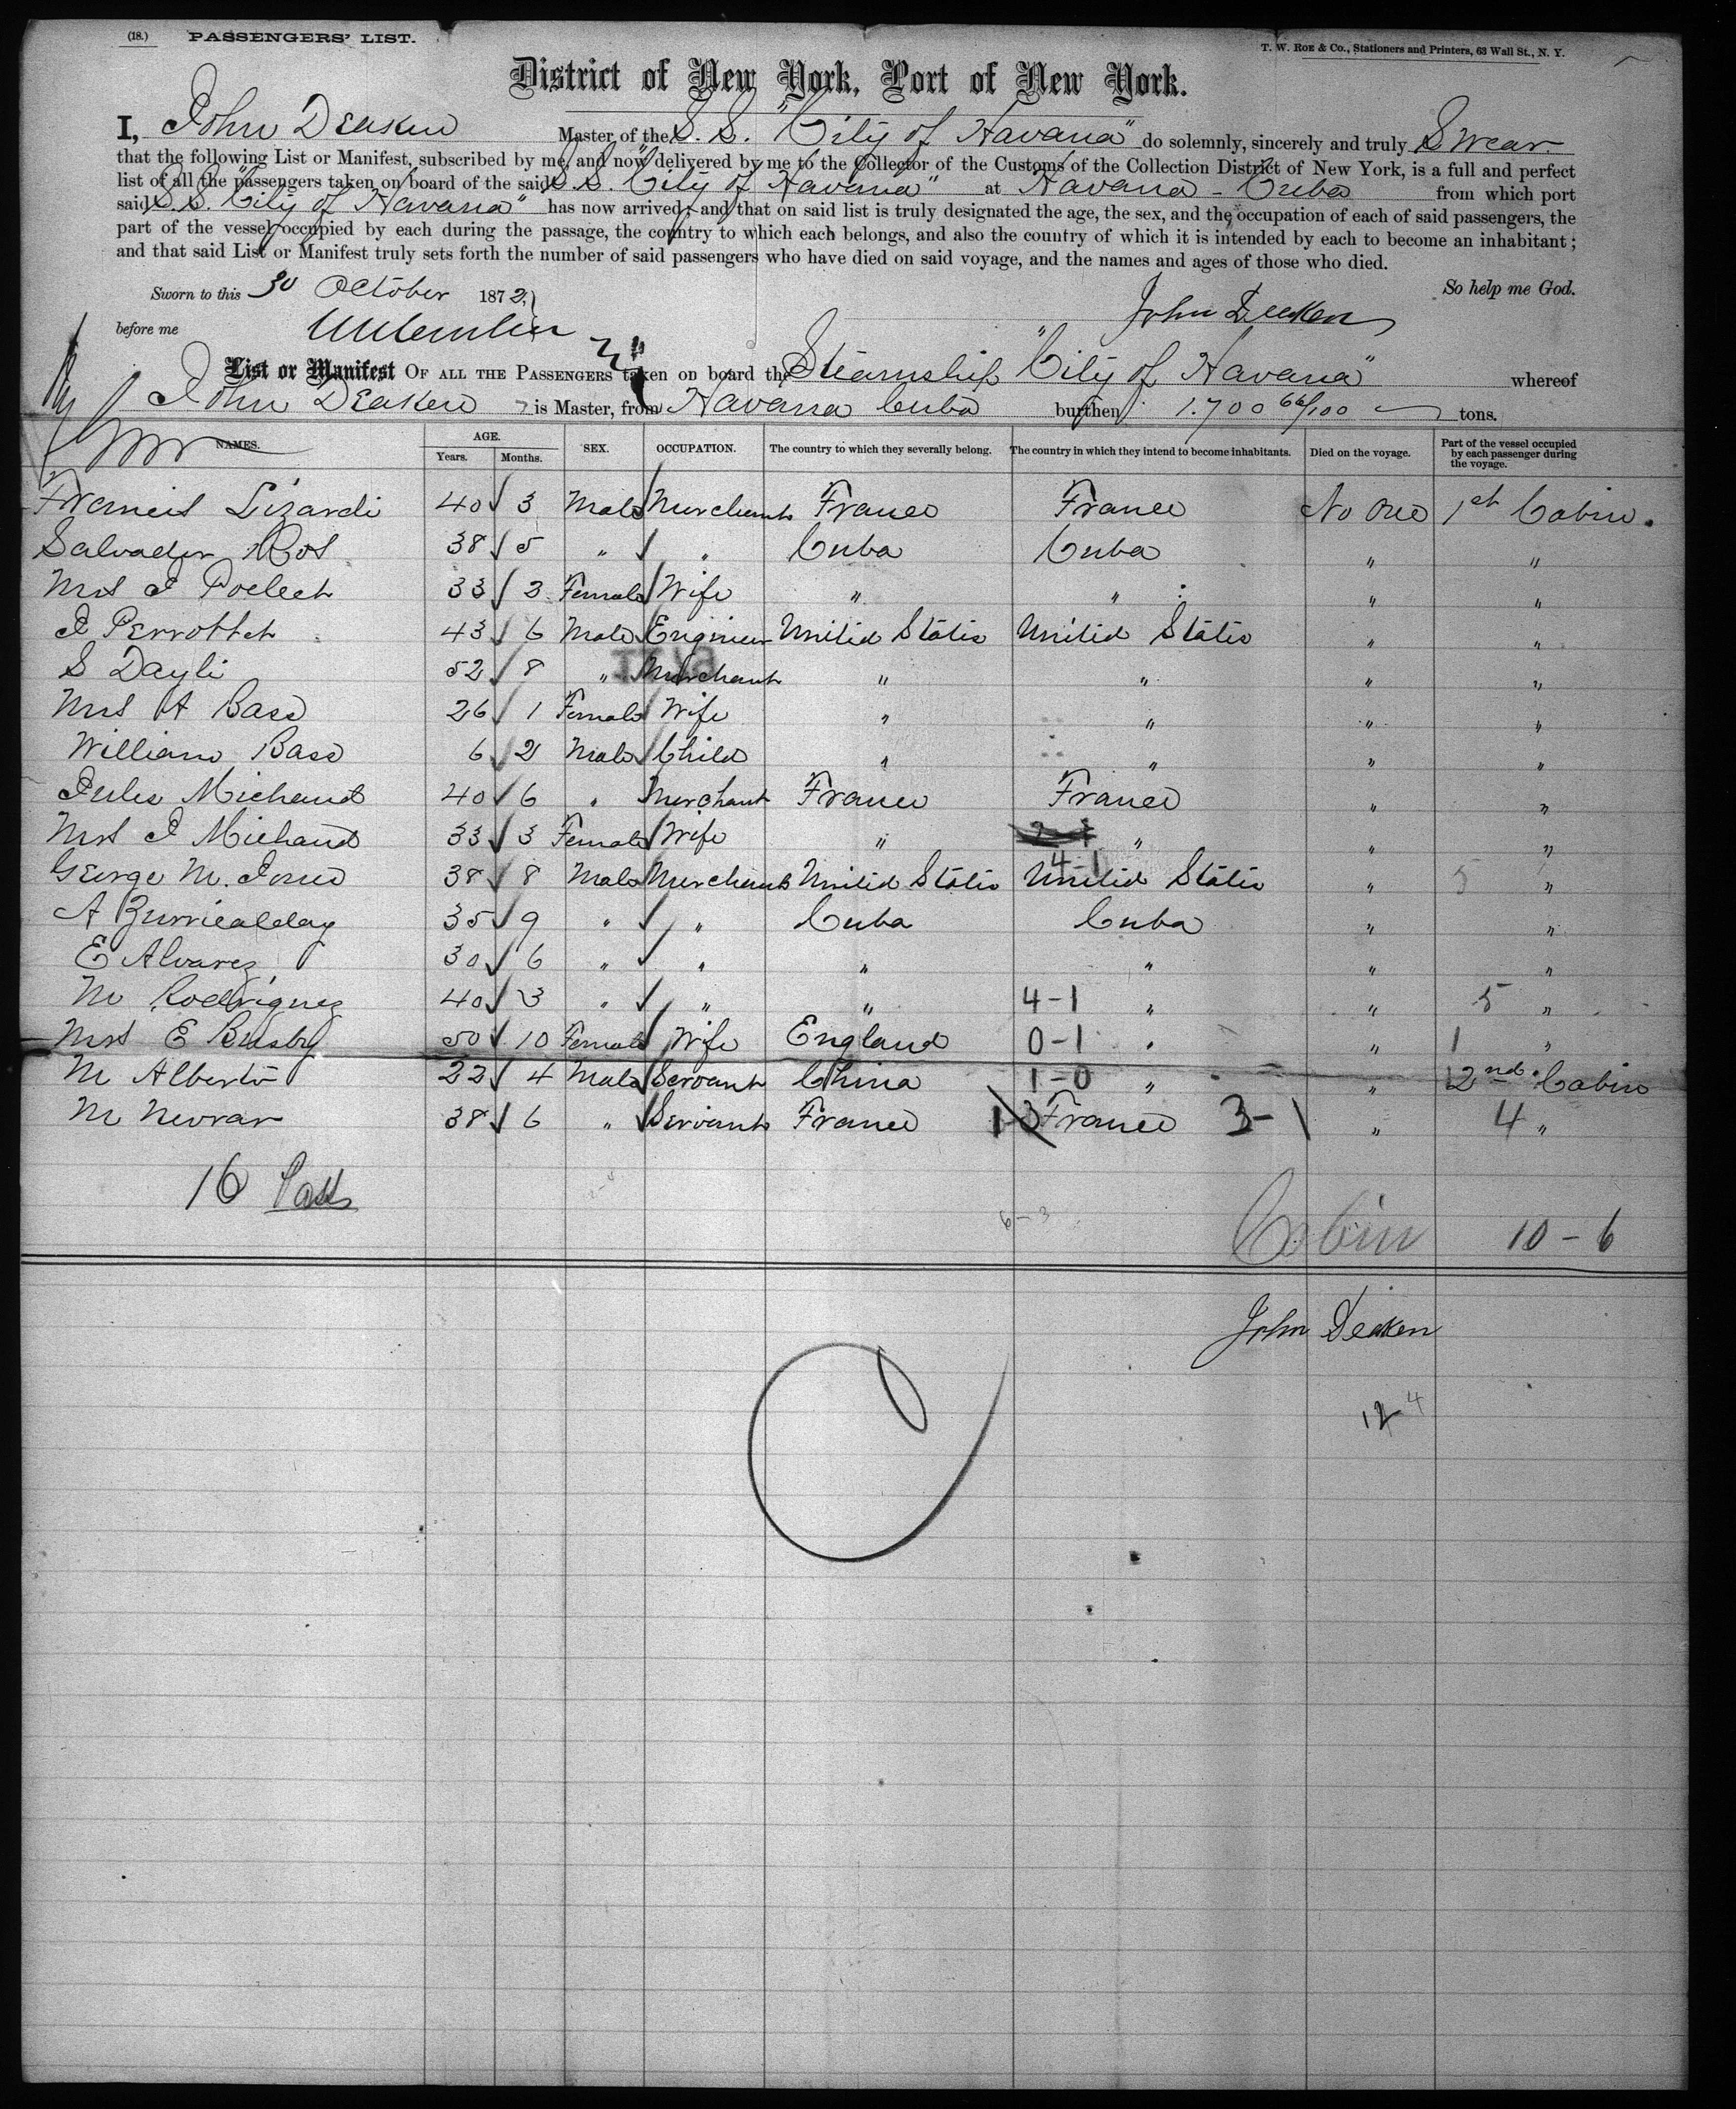 (18.) PASSENGERS' LIST.
T. W. Roe & Co., Stationers and Printers, 63 Wall St., N. Y.
District of New York, Port of New York.
I, John Deaken Master of the S. S. "City of Havana" do solemnly, sincerely and truly Swear
that the following List or Manifest, subscribed by me, and now delivered by me to the Collector of the Customs of the Collection District of New York, is a full and perfect
list of all the passengers taken on board of the said S. S. "City of Havana" at Havana - Cuba from which port
said S. S. "City of Havana" has now arrived; and that on said list is truly designated the age, the sex, and the occupation of each of said passengers, the
part of the vessel occupied by each during the passage, the country to which each belongs, and also the country of which it is intended by each to become an inhabitant;
and that said List or Manifest truly sets forth the number of said passengers who have died on said voyage, and the names and ages of those who died.
Sworn to this 30 October 1872, So help me God.
before me John Deaken
List or Manifest OF ALL THE PASSENGERS taken on board the Steamship "City of Havana" whereof
John Deaken is Master, from Havana Cuba burthen 1.700 66/100 tons.
NAMES. AGE. Years. Months. SEX. OCCUPATION. The country to which they severally belong. The country in which they intend to become inhabitants. Died on the voyage. Part of the vessel occupied by each passenger during the voyage.
Francis Lizardi 40 3 Male Merchant France France No One 1st Cabin.
Salvador Ros 38 5 " " Cuba Cuba " "
Mrs J 33 3 Female Wife " " " "
J Perrottet 43 6 Male Engineer United States United States " "
S Dayli 52 8 " Merchant " " " "
Mrs A Bass 26 1 Female Wife " " " "
William Bass 6 2 Male Child " " " "
Jules Michaud 40 6 " Merchant France France " "
Mrs J Michaud 33 3 Female Wife " " " "
George M. Jones 38 8 Male Merchant United States 4-1 United States " 5 "
A 35 9 " " Cuba Cuba " "
E Alvarez 30 6 " " " " " "
M Rodriguez 40 3 " " " 4-1 " " 5 "
Mrs E Busby 50 10 Female Wife England 0-1 " " 1 "
M Alberto 22 4 Male Servant China 1-0 " " 1 2nd Cabin
M Nevrar 38 6 " Servant France 1-3 France 3-1 " 4 "
16 Pass
6-3
Cabin 10-6
John Deaken
12 4
C